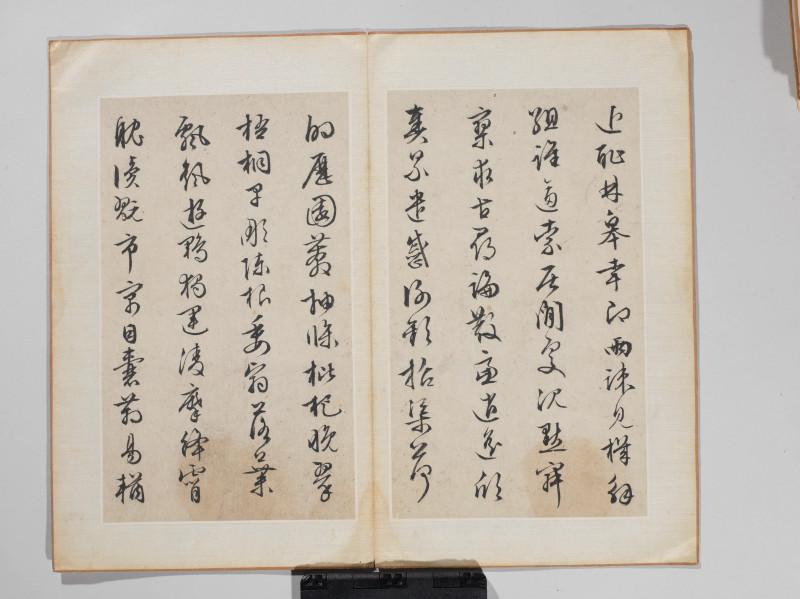 近恥林皋幸即兩疎見機解
組誰逼索居閒處沈默寂
寥求古尋論散慮逍遙欣
奏累遣慼謝歡招渠荷
的歷園莽抽條枇杷晚翠
梧桐早彫陳根委翳落葉
飄颻遊鵾獨運凌摩絳霄
耽讀翫市寓目囊箱易輶